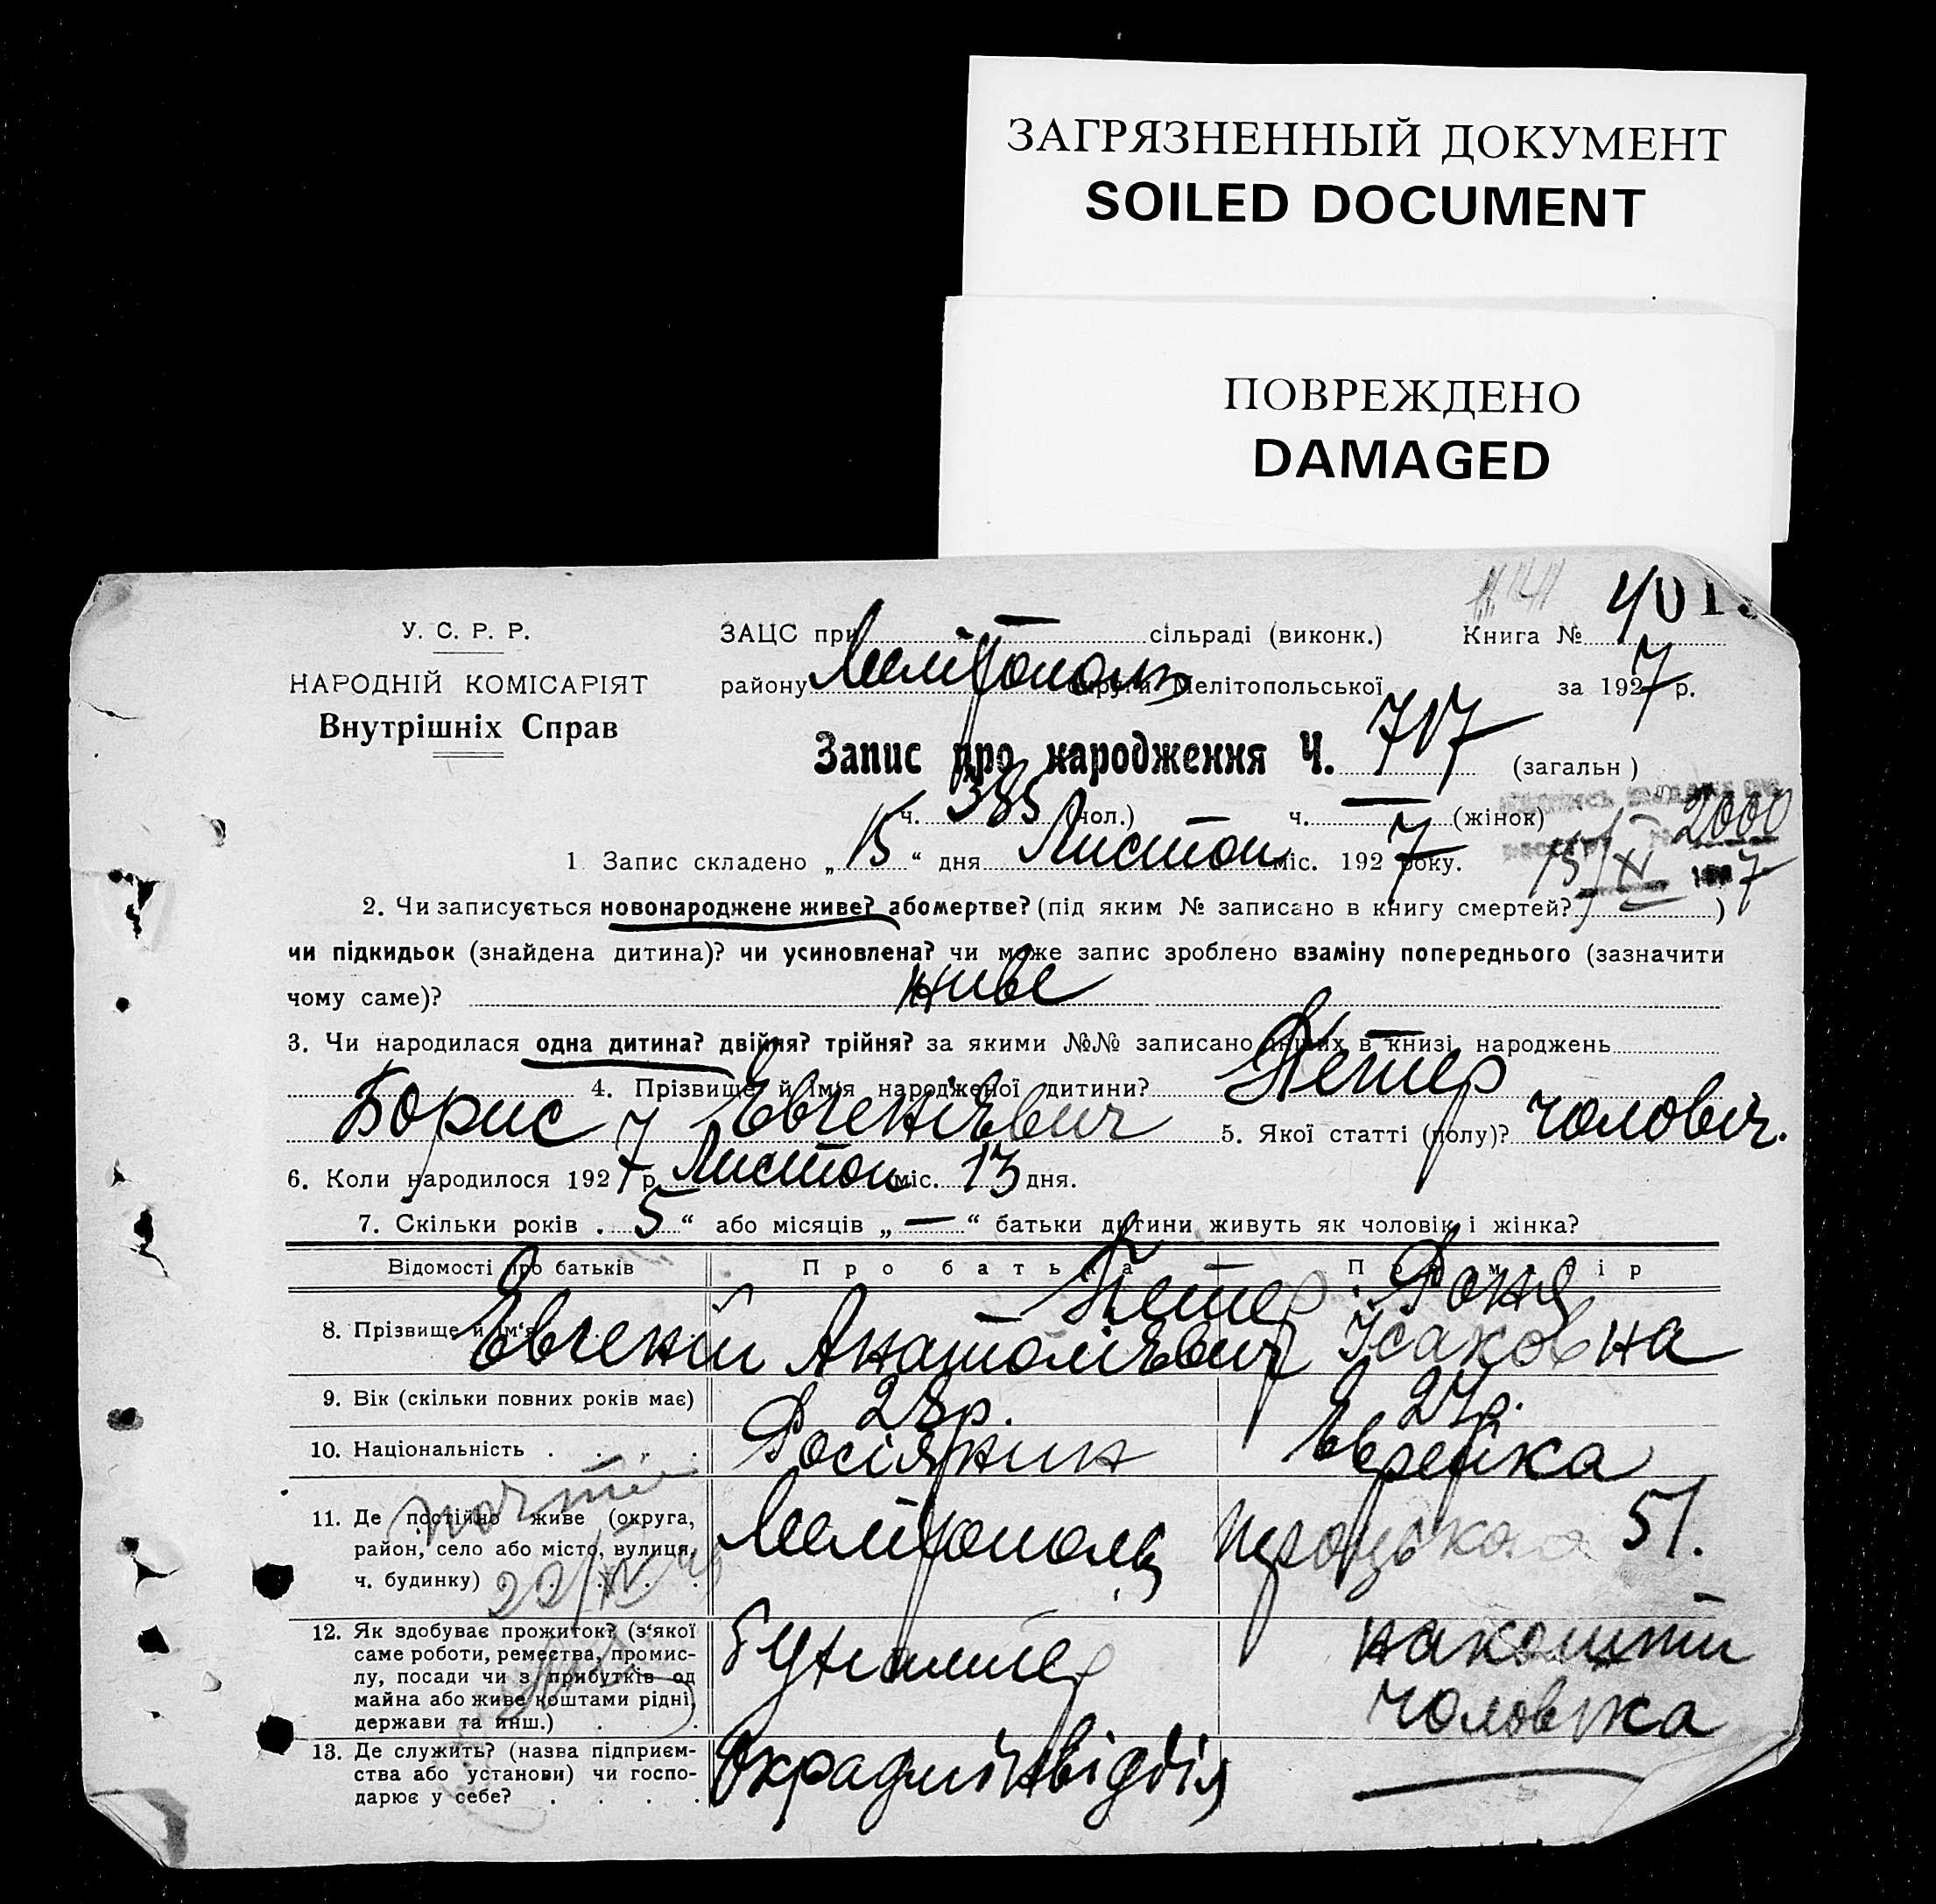 ЗАГРЯЗНЕННЫЙ ДОКУМЕНТ
SOILED DOCUMENT
ПОВРЕЖДЕНО
DAMAGED
У. С. Р. Р.
НАРОДНІЙ КОМІСАРІЯТ
Внутрішніх Справ
ЗАЦС при — сільраді (виконк.) Книга №
району Мелітополь округи Мелітопольської за 1927 р.
Запис про народження Ч. 717 (загальн)
ч. 385 (чол.) ч. — (жінок)
2000
15/XI 1927
1 Запис складено „15“ дня Листоп міс. 1927 року.
2. Чи записується новонароджене живе? або мертве? (під яким № записано в книгу смертей? )
чи підкидьок (знайдена дитина)? чи усиновлена? чи може запис зроблено взаміну попереднього (зазначити
чому саме)? живе
3. Чи народилася одна дитина? двійня? трійня? за якими №№ записано інших в книзі народжень —
4. Прізвище й ім'я народженої дитини? Петер
Борис Євгенієвич 5. Якої статті (полу)? чоловіч.
6. Коли народилося 1927 р. Листоп міс. 13 дня.
7. Скільки років „5“ або місяців „—“ батьки дитини живуть як чоловік і жінка?
Відомості про батьків Про батька Про матір
8. Прізвище й ім'я Петер Євгеній Анатолієвич — Ісаковна
9. Вік (скільки повних років має) 28р. 27р.
10. Національність Росіянин Еврейка
11. Де постійно живе (округа,
район, село або місто, вулиця,
ч. будинку) Мелітополь 51.
12. Як здобуває прожиток? (з'якої
саме роботи, ремества, промис-
лу, посади чи з прибутків од
майна або живе коштами рідні,
держави та инш.)
на кошти
чоловіка
13. Де служить? (назва підприєм-
ства або установи) чи госпо-
дарює у себе?